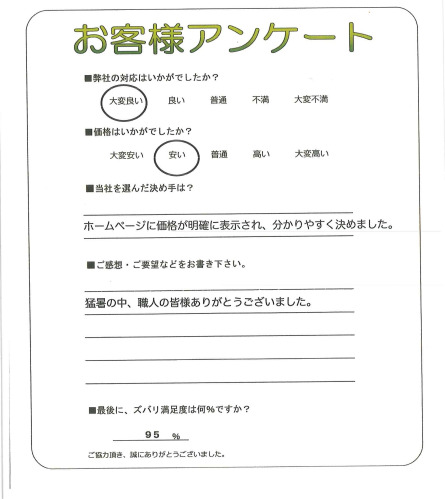 お客様アンケート
■弊社の対応はいかがでしたか?
大変良い 良い 普通 不満 大変不満
■価格はいかがでしたか?
大変安い 安い 普通 高い 大変高い
■当社を選んだ決め手は?
ホームページに価格が明確に表示され、分かりやすく決めました。
■ご感想・ご要望などをお書き下さい。
猛暑の中、職人の皆様ありがとうございました。
■最後に、ズバリ満足度は何%ですか?
95 %
ご協力頂き、誠にありがとうございました。